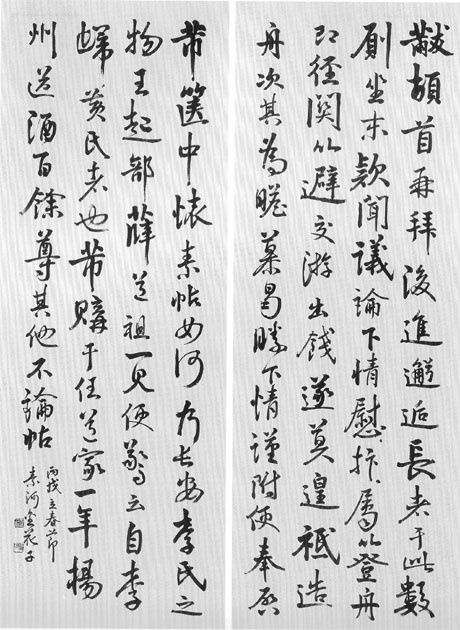 黻頓首再拜後進邂逅長者于此數
厠坐末款聞議論下情慰抃屬以登舟
即徑関以避交游出餞遂莫遑祗造
舟次其為瞻慕曷勝下情謹附便奉啓
芾篋中懷素帖如何乃長安李氏之
物王起部薛道祖一見便驚云自李
歸黃氏者也芾購于任道家一年楊
州送酒百餘尊其他不論帖
丙戌立春節
素河金花子